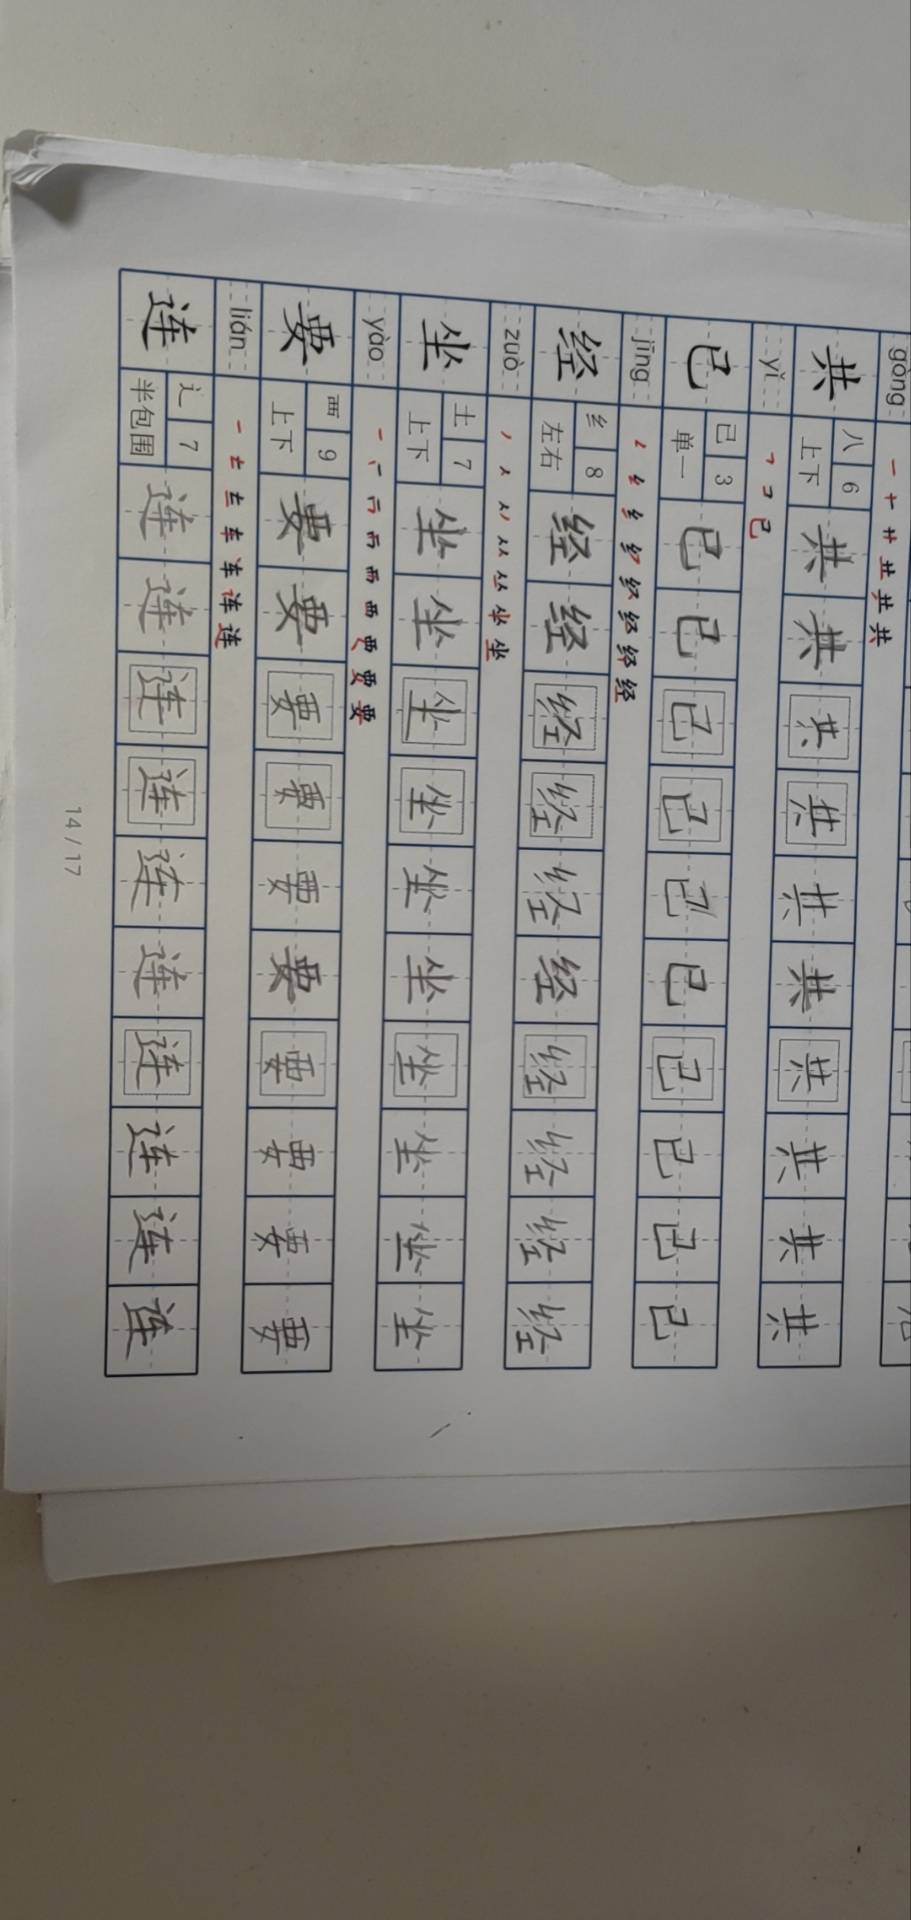 gòng 一 十 艹 丑 共 共
共 八 6 上下 共 共 共 共 共 共 共 共 共 共
yǐ ㇕ コ 已
已 已 3 单一 已 已 已 已 已 已 已 已 已 已
jīng 纟 经 经
经 纟 8 左右 经 经 经 经 经 经 经 经 经 经
zuò 丿 人 从 坐 坐
坐 土 7 上下 坐 坐 坐 坐 坐 坐 坐 坐 坐 坐
yào 一 西 要 要
要 覀 9 上下 要 要 要 要 要 要 要 要 要 要
lián 一 车 连 连
连 辶 7 半包围 连 连 连 连 连 连 连 连 连 连
14/17